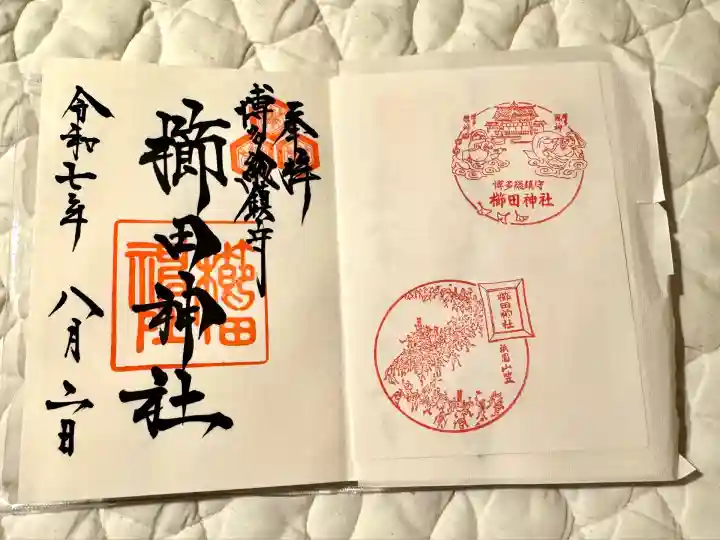 奉拝
博多総鎮守
櫛田神社
令和七年 八月二日
博多総鎮守
櫛田神社
櫛田神社
祇園山笠